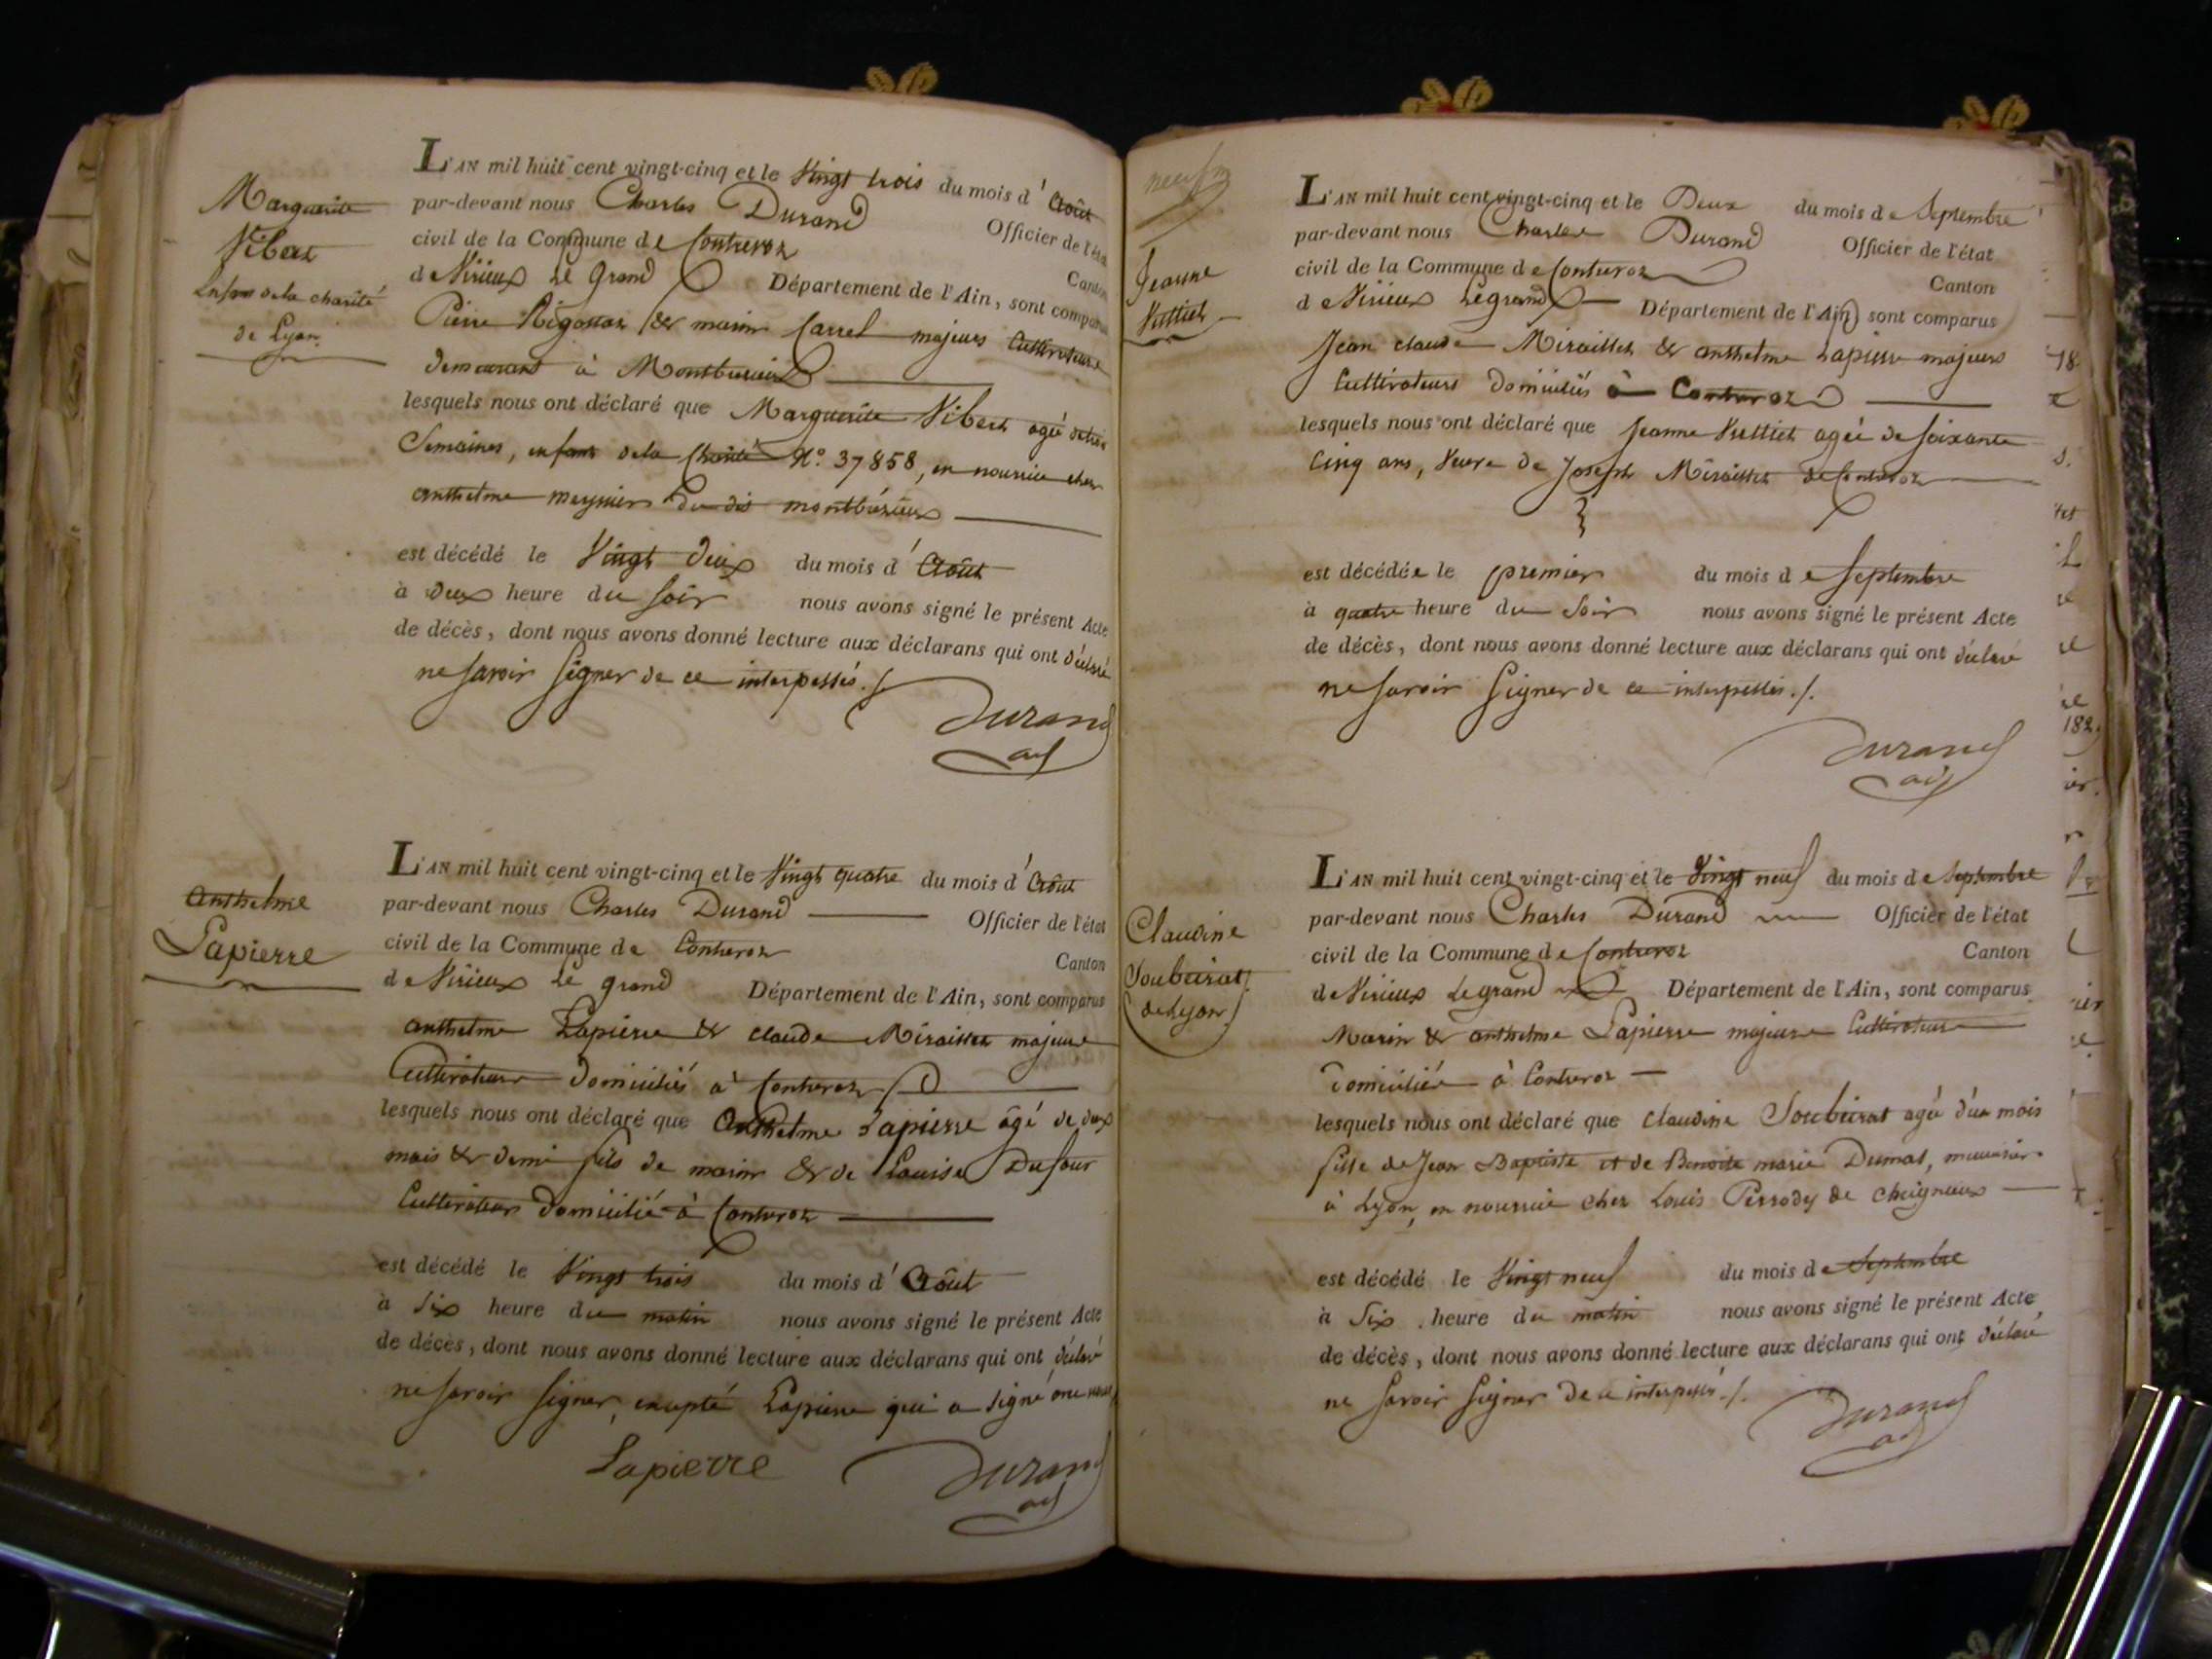 Marguerite
Vibert
enfant de la charité
de Lyon
L'AN mil huit cent vingt-cinq et le Vingt trois du mois d'Août
par-devant nous Charles Durand Officier de l'état
civil de la Commune de Contrevoz Canton
de Virieux Le Grand Département de l'Ain, sont comparus
Pierre & marin Carrel majeurs Cultivateurs
demeurant à
lesquels nous ont déclaré que Marguerite Vibert agée de trois
Semaines, enfant de la Charité N.º 37858, en nourrice chez
anthelme meynier du dit
est décédé le Vingt deux du mois d'Août
à deux heure du soir nous avons signé le présent Acte
de décès, dont nous avons donné lecture aux déclarans qui ont déclaré
ne savoir signer de ce interpellés./.
Durand
adj
Anthelme
Lapierre
L'AN mil huit cent vingt-cinq et le Vingt quatre du mois d'Août
par-devant nous Charles Durand Officier de l'état
civil de la Commune de Contrevoz Canton
de Virieux Le grand Département de l'Ain, sont comparus
anthelme Lapierre & claude Miraillet majeurs
Cultivateurs domiciliés à Contrevoz
lesquels nous ont déclaré que Anthelme Lapierre âgé de deux
mois & demi fils de marin & de Louise Dufour
Cultivateurs domicilié à Contrevoz
est décédé le Vingt trois du mois d'Août
à Six heure du matin nous avons signé le présent Acte
de décès, dont nous avons donné lecture aux déclarans qui ont déclaré
ne savoir signer, excepté Lapierre qui a signé avec nous
Lapierre Durand
adj
Jeanne
Vuilliet
L'AN mil huit cent vingt-cinq et le Deux du mois de Septembre
par-devant nous Charles Durand Officier de l'état
civil de la Commune de Contrevoz Canton
de Virieux Le grand Département de l'Ain, sont comparus
Jean claude Miraillet & anthelme Lapierre majeurs
Cultivateurs domiciliés à Contrevoz
lesquels nous ont déclaré que Jeanne Vuilliet agée de soixante
Cinq ans, Veuve de Joseph Miraillet de Contrevoz
est décédée le premier du mois de Septembre
à quatre heure du Soir nous avons signé le présent Acte
de décès, dont nous avons donné lecture aux déclarans qui ont déclaré
ne savoir signer de ce interpellés./.
Durand
adj
Claudine
Soubeirat
(de Lyon)
L'AN mil huit cent vingt-cinq et le Vingt neuf du mois de Septembre
par-devant nous Charles Durand Officier de l'état
civil de la Commune de Contrevoz Canton
de Virieux Le grand Département de l'Ain, sont comparus
Marin & anthelme Lapierre majeurs Cultivateurs
domiciliés à Contrevoz
lesquels nous ont déclaré que Claudine Soubeirat agée d'un mois
fille de Jean Baptiste et de Benoite marie Dumas, menuisier
à Lyon, en nourrice chez Louis Perrody de Cheignieux
est décédé le Vingt neuf du mois de Septembre
à Six heure du matin nous avons signé le présent Acte
de décès, dont nous avons donné lecture aux déclarans qui ont déclaré
ne savoir signer de ce interpellés./.
Durand
adj